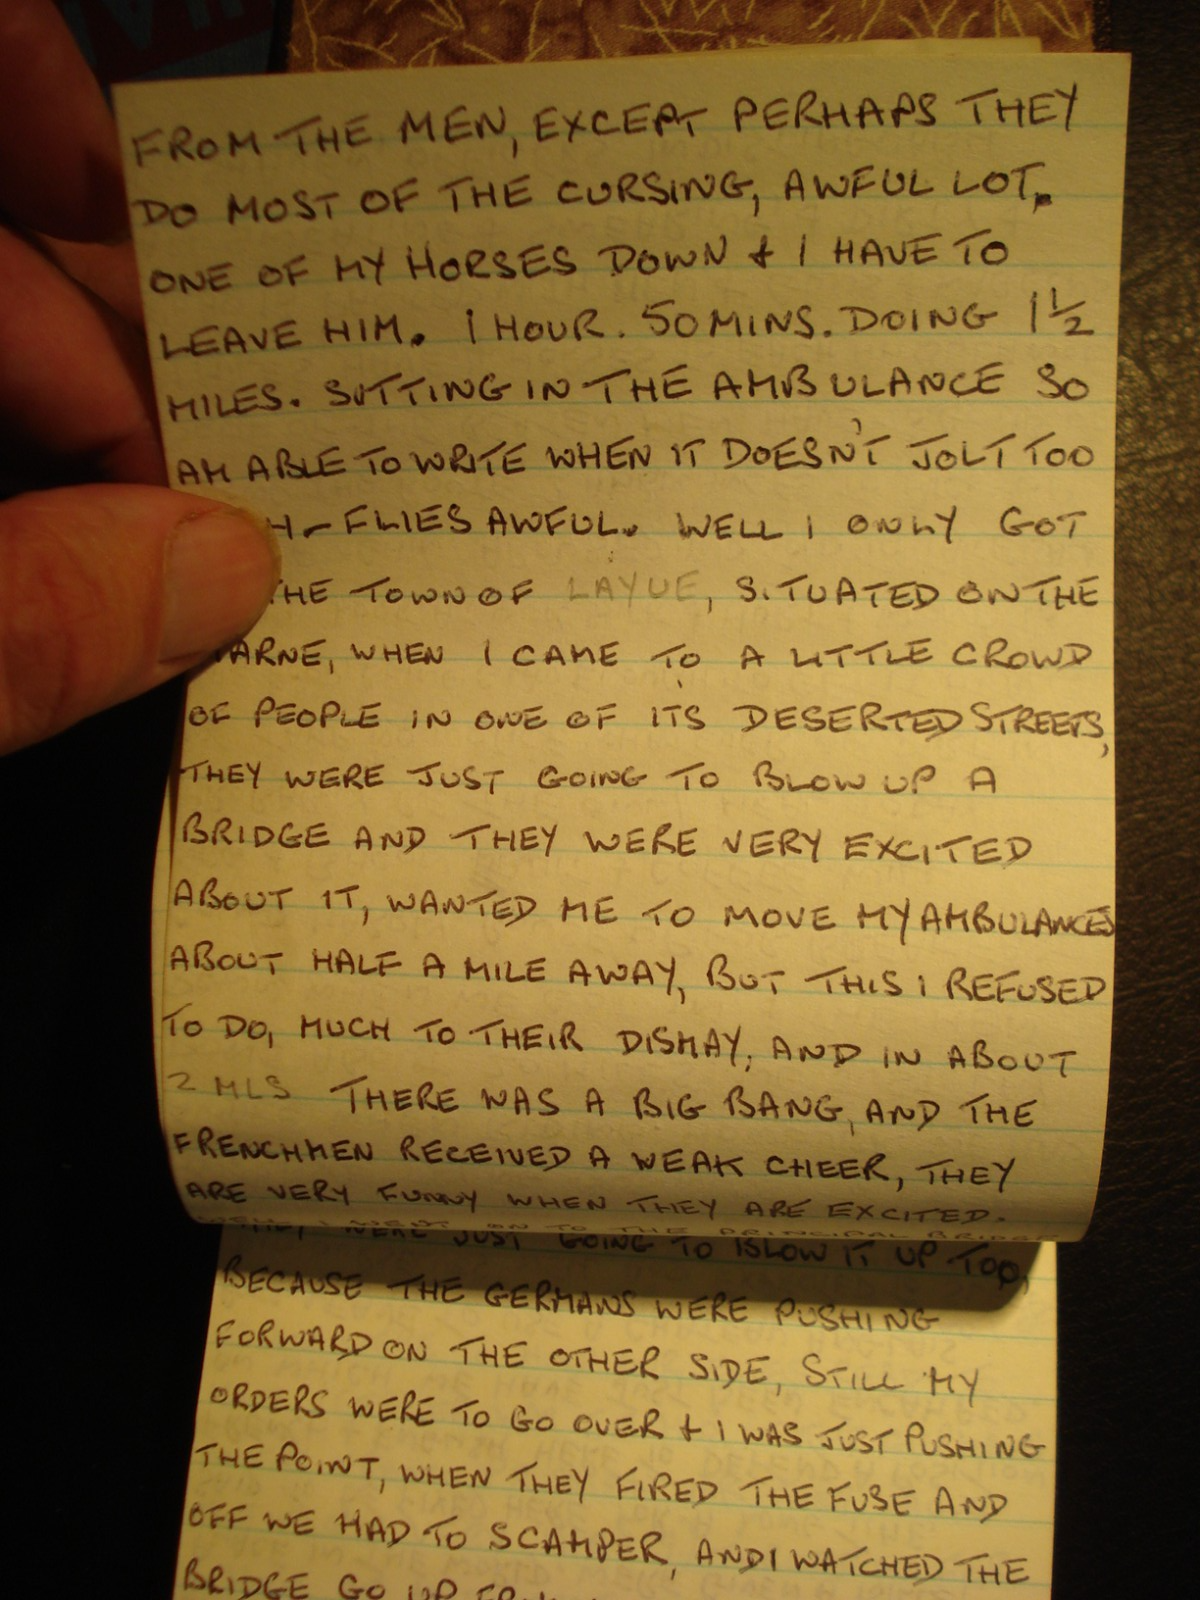 FROM THE MEN, EXCEPT PERHAPS THEY
DO MOST OF THE CURSING, AWFUL LOT.
ONE OF MY HORSES DOWN & I HAVE TO
LEAVE HIM. 1 HOUR. 50 MINS. DOING 1½
MILES. SITTING IN THE AMBULANCE SO
AM ABLE TO WRITE WHEN IT DOESN'T JOLT TOO
H - FLIES AWFUL. WELL I ONLY GOT
THE TOWN OF LAYUE, SITUATED ON THE
ARNE, WHEN I CAME TO A LITTLE CROWD
OF PEOPLE IN ONE OF ITS DESERTED STREETS,
THEY WERE JUST GOING TO BLOW UP A
BRIDGE AND THEY WERE VERY EXCITED
ABOUT IT, WANTED ME TO MOVE MY AMBULANCES
ABOUT HALF A MILE AWAY, BUT THIS I REFUSED
TO DO, MUCH TO THEIR DISMAY, AND IN ABOUT
2 MLS THERE WAS A BIG BANG, AND THE
FRENCHMEN RECEIVED A WEAK CHEER, THEY
ARE VERY FUNNY WHEN THEY ARE EXCITED.
I WENT ON TO THE PRINCIPAL BRIDGE
WERE JUST GOING TO BLOW IT UP TOO,
BECAUSE THE GERMANS WERE PUSHING
FORWARD ON THE OTHER SIDE, STILL MY
ORDERS WERE TO GO OVER & I WAS JUST PUSHING
THE POINT, WHEN THEY FIRED THE FUSE AND
OFF WE HAD TO SCAMPER, AND I WATCHED THE
BRIDGE GO UP